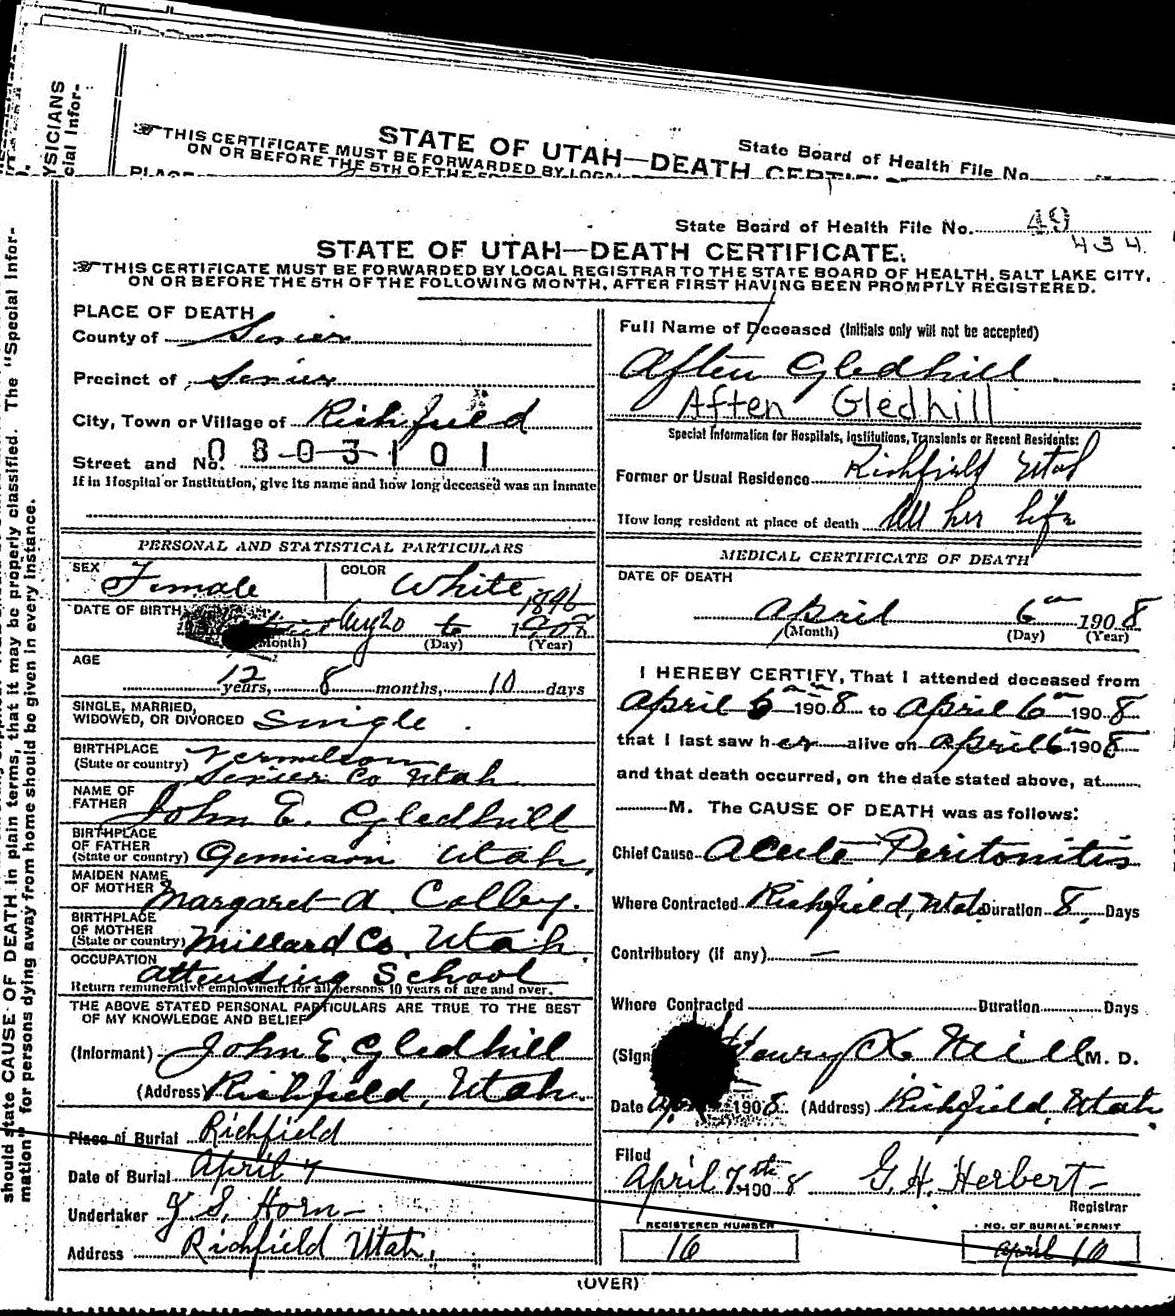 YSICIANS
cial Infor-
State Board of Health File No.
STATE OF UTAH—DEATH CERTIF
THIS CERTIFICATE MUST BE FORWARDED BY LOCAL
ON OR BEFORE THE 5TH OF THE
PLACE
should state CAUSE OF DEATH in plain terms, that it may be properly classified. The "Special Infor-
mation" for persons dying away from home should be given in every instance.
State Board of Health File No. 49
434
STATE OF UTAH—DEATH CERTIFICATE.
THIS CERTIFICATE MUST BE FORWARDED BY LOCAL REGISTRAR TO THE STATE BOARD OF HEALTH, SALT LAKE CITY,
ON OR BEFORE THE 5TH OF THE FOLLOWING MONTH, AFTER FIRST HAVING BEEN PROMPTLY REGISTERED.
PLACE OF DEATH
County of Sevier
Precinct of Sevier
City, Town or Village of Richfield
Street and No. 0803101
If in Hospital or Institution, give its name and how long deceased was an inmate
PERSONAL AND STATISTICAL PARTICULARS
SEX Female COLOR White
DATE OF BIRTH Aug 20 1896
(Month) (Day) (Year)
AGE
12 years, 8 months, 10 days
SINGLE, MARRIED,
WIDOWED, OR DIVORCED Single.
BIRTHPLACE Vermilson
(State or country) Sevier Co Utah
NAME OF
FATHER John E. Gledhill
BIRTHPLACE
OF FATHER
(State or country) Gunnison Utah,
MAIDEN NAME
OF MOTHER Margaret A. Colby.
BIRTHPLACE
OF MOTHER
(State or country) Millard Co, Utah.
OCCUPATION attending School
Return remunerative employment for all persons 10 years of age and over.
THE ABOVE STATED PERSONAL PARTICULARS ARE TRUE TO THE BEST
OF MY KNOWLEDGE AND BELIEF
(Informant) John E. Gledhill
(Address) Richfield, Utah.
Place of Burial Richfield
Date of Burial April 7
Undertaker J S. Horn
Address Richfield Utah.
Full Name of Deceased (Initials only will not be accepted)
Aften Gledhill
Aften Gledhill
Special Information for Hospitals, Institutions, Transients or Recent Residents:
Former or Usual Residence Richfield Utah
How long resident at place of death All her life
MEDICAL CERTIFICATE OF DEATH
DATE OF DEATH
April 6 1908
(Month) (Day) (Year)
I HEREBY CERTIFY, That I attended deceased from
April 6 1908 to April 6 1908
that I last saw her alive on April 6 1908
and that death occurred, on the date stated above, at
M. The CAUSE OF DEATH was as follows:
Chief Cause Acute Peritonitis
Where Contracted Richfield, Utah Duration 8 Days
Contributory (if any) —
Where Contracted Duration Days
(Sign Henry K Neill M. D.
Date 1908. (Address) Richfield, Utah
Filed
April 7th 1908 G. H. Herbert
Registrar
REGISTERED NUMBER
16
NO. OF BURIAL PERMIT
April 10
(OVER)